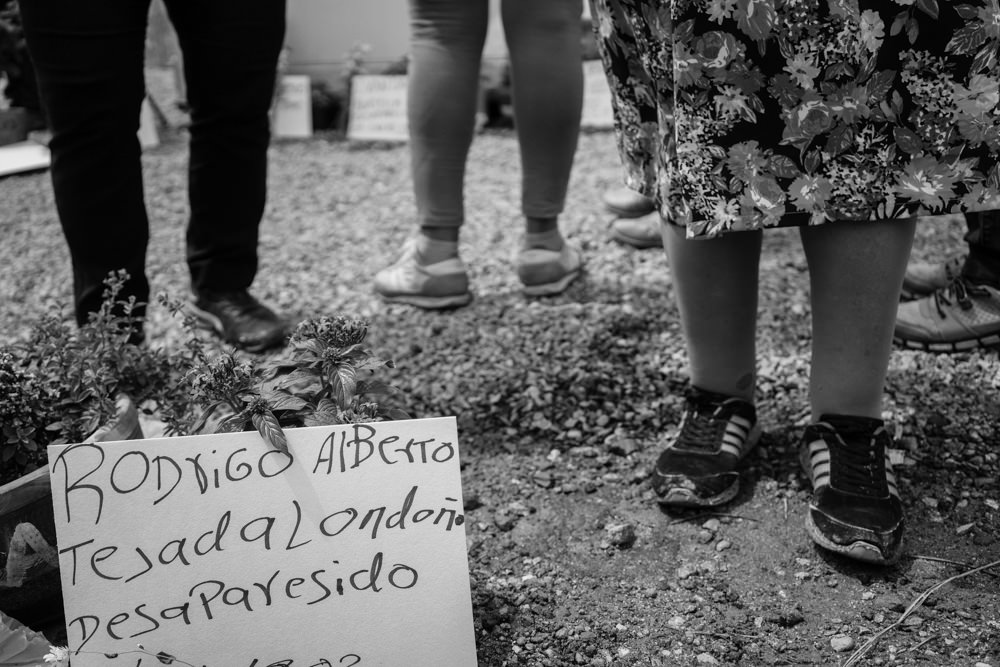 Rodrigo Alberto
Tejada Londoño
Desaparesido